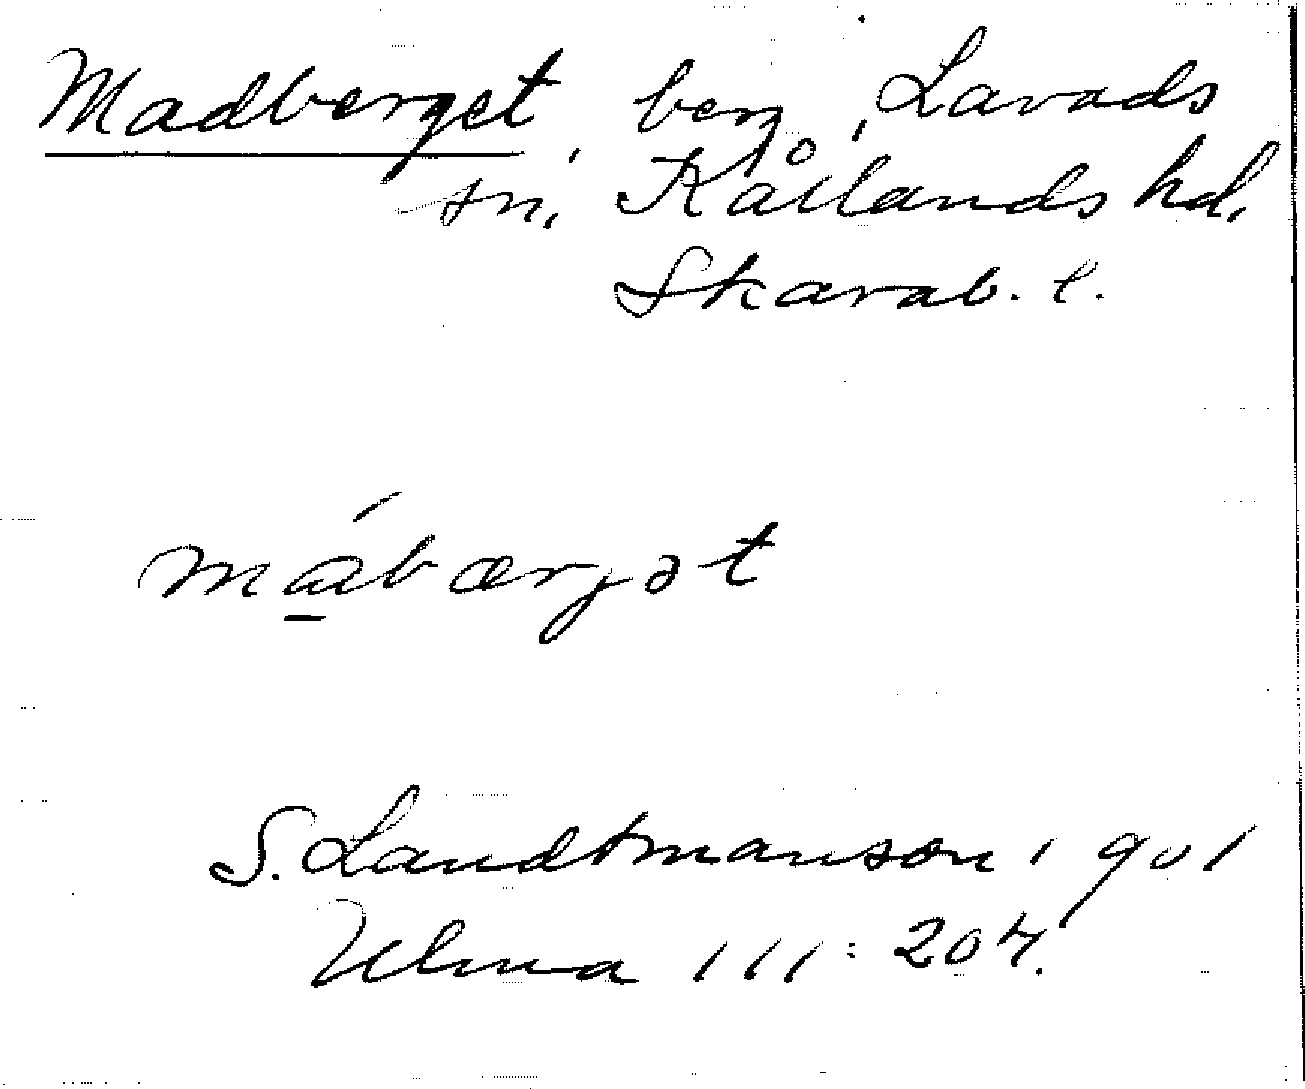 Madberget, berg, Lavads
sn, Kållands hd,
Skarab. l.
mábærjət
S. Landtmanson 1901
Ulma 111:204.